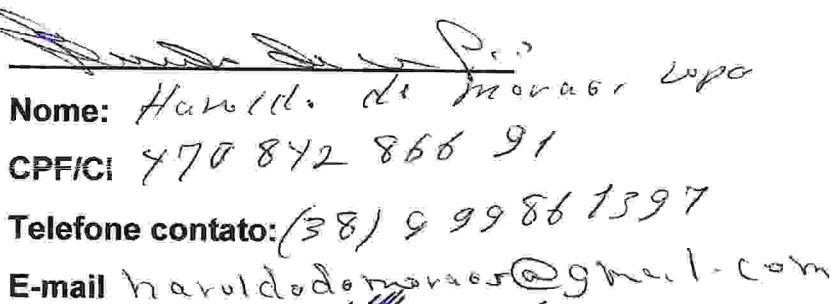 Nome: Haroldo de Moraes Lopo
CPF/CI 470 842 866 91
Telefone contato: (38) 9 9986 1397
E-mail haroldodemoraes@gmail.com